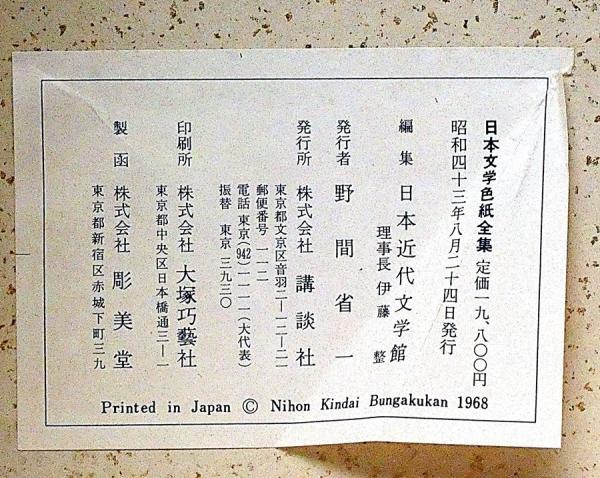 日本文学色紙全集 定価一九、八〇〇円
昭和四十三年八月二十四日発行
編集 日本近代文学館
理事長 伊藤 整
発行者 野間省一
発行所 株式会社 講談社
東京都文京区音羽二ー一二ー二一
郵便番号 一一二
電話 東京(942)一一一一(大代表)
振替 東京 三九三〇
印刷所 株式会社 大塚巧藝社
東京都中央区日本橋通三ー一
製函 株式会社 彫美堂
東京都新宿区赤城下町三九
Printed in Japan © Nihon Kindai Bungakukan 1968